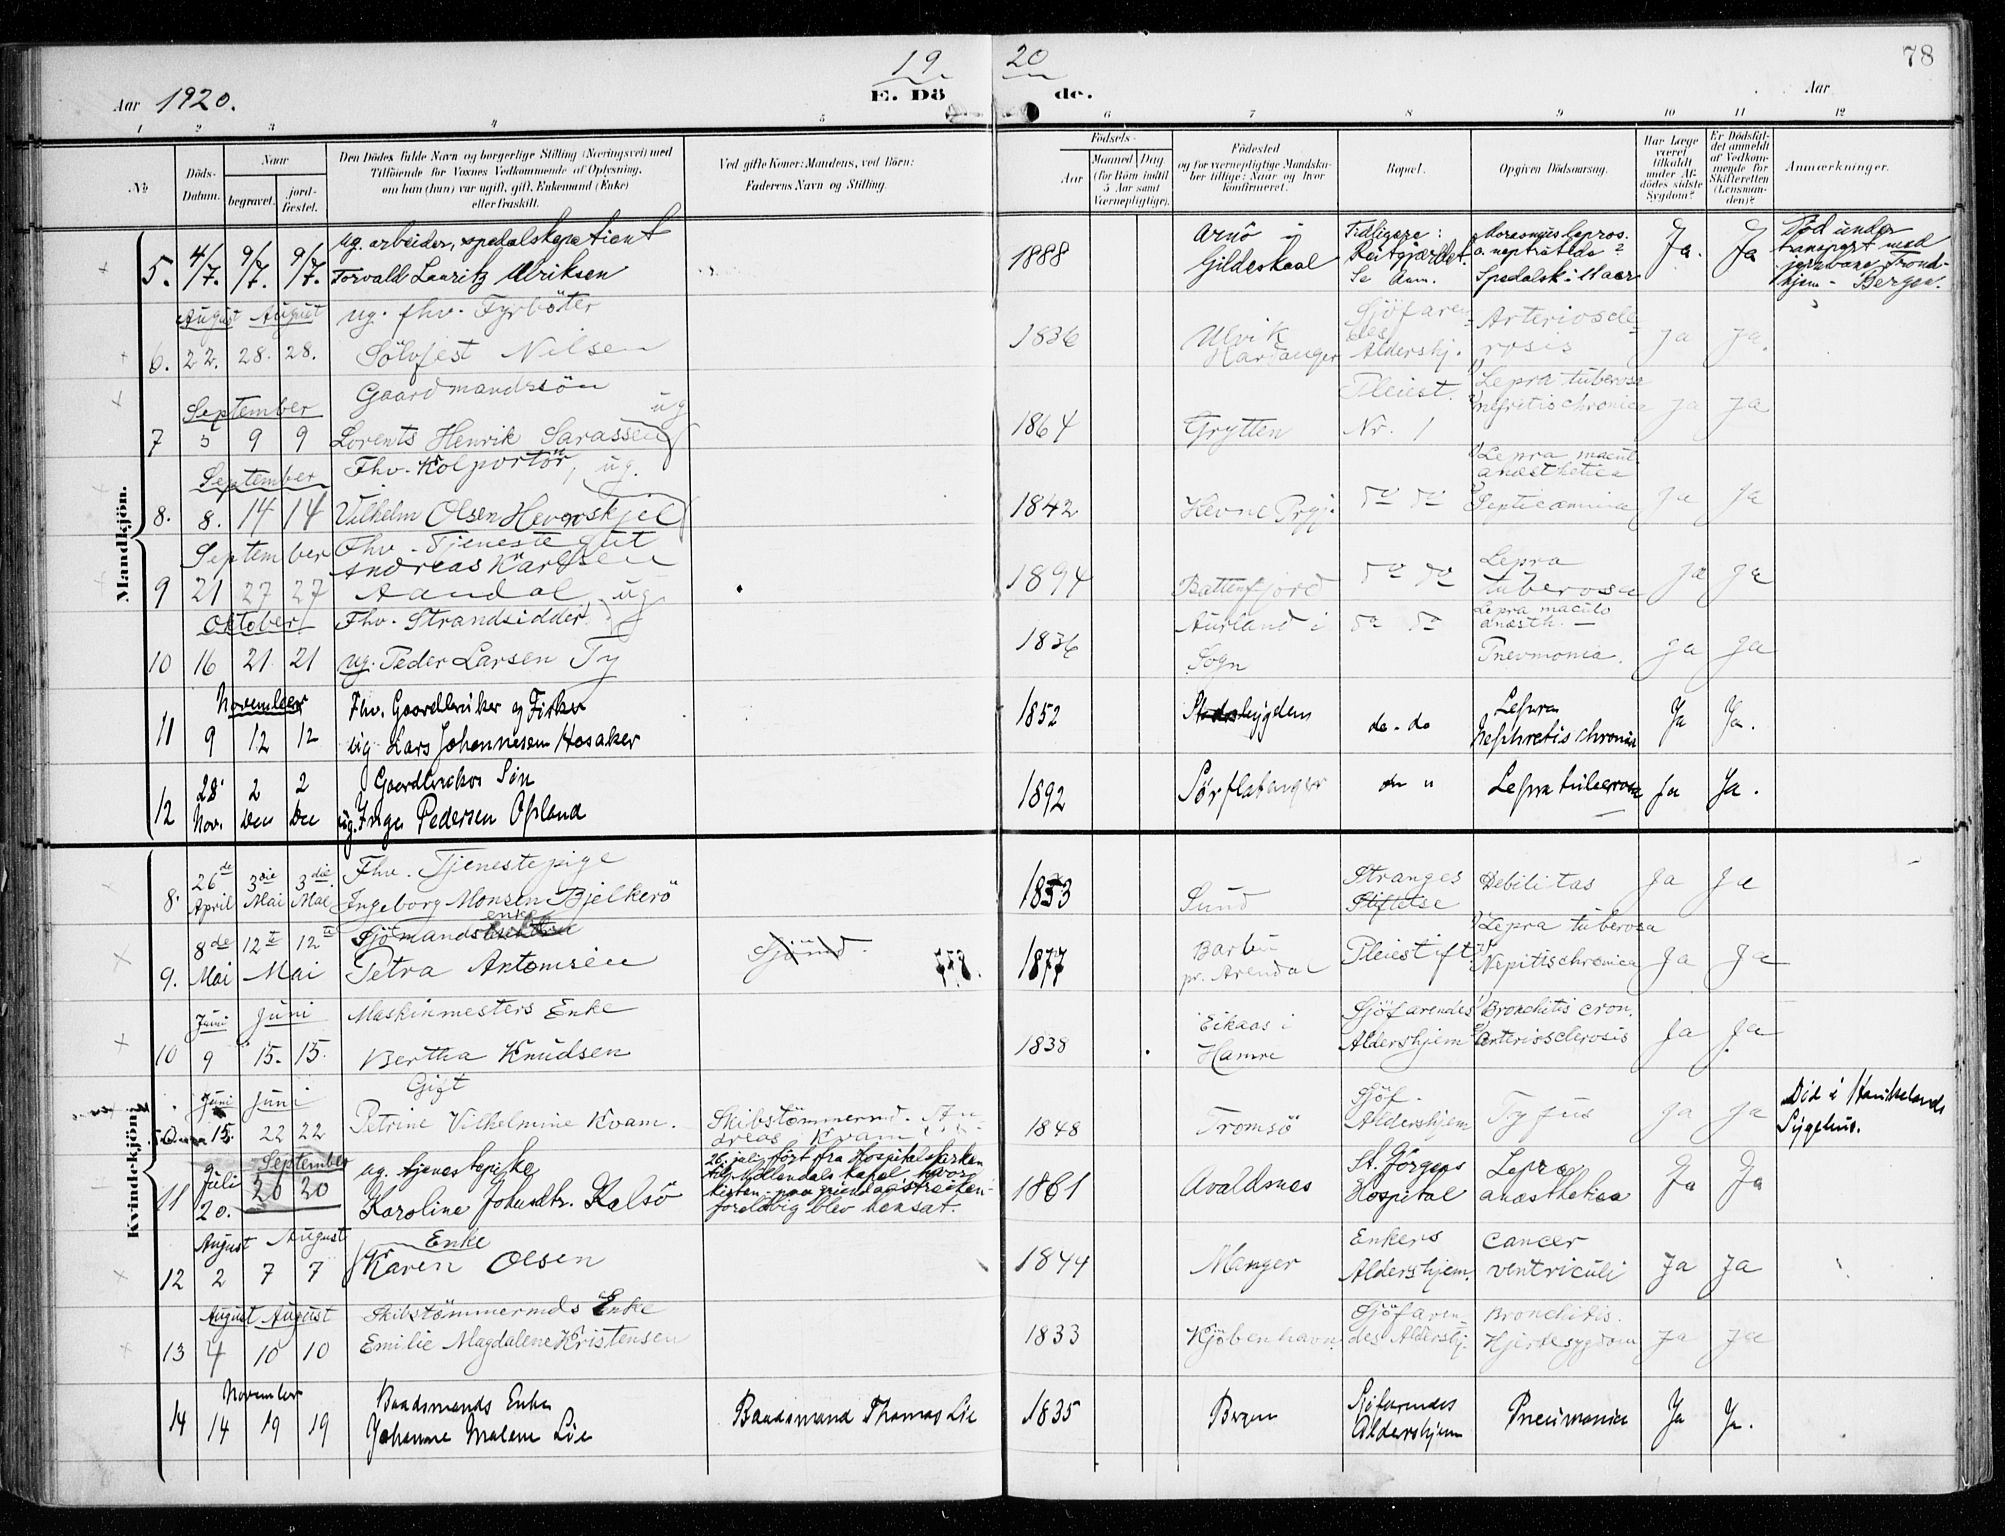 78
19 20
Aar 1920. E. Dö de. Aar
1 2 3 4 5 6 7 8 9 10 11 12
№
Döds-
Datum.
Naar
begravet.
jord-
fæstet.
Den Dödes fulde Navn og borgerlige Stilling (Næringsvei) med
Tilföiende for Voxnes Vedkommende af Oplysning,
om han (hun) var ugift, gift, Enkemand (Enke)
eller fraskilt.
Ved gifte Koner: Mandens, ved Börn:
Faderens Navn og Stilling.
Födsels-
Aar
Maaned Dag
(for Börn indtil
5 Aar samt
Værnepligtige).
Födested
og for værnepligtige Mandska-
ber tillige: Naar og hvor
konfirmeret.
Bopæl.
Opgiven Dödsaarsag.
Har Læge
været
tilkaldt
under Af-
dödes sidste
Sygdom?
Er Dödsfal-
det anmeldt
af Vedkom-
mende for
Skifteretten
(Lensman-
den)?
Anmærkninger.
Mandkjön.
5. 4/7. 9/7. 9/7. ug. arbeider, spedalsk patient
Torvald Lauritz Ulriksen
1888 Arnö i
Gildeskaal
Tidligere:
Reitgjærdet.
Se Anm.
Marasmus lepros.
Spedalsk i 11 aar
Ja. Ja
Död under
transport med
jernbane Trond-
hjem - Bergen.
August August ug. fhv. Fyrböter
6. 22. 28. 28. Sölvfest Nilsen
1836 Ulvik
Hardanger
Sjöfaren-
des
Aldershj.
Arterioscle-
rosis
Ja Ja.
September Gaardmandssön
7 3 9 9 Lorents Henrik Sarassen ug
1864 Grytten Pleiest.
Nr. 1
1) Lepra tuberosa
2) nefritis chronica
Ja Ja
September Fhv. Kolportör, ug.
8. 8. 14 14 Vilhelm Olsen Hevnskjel
1842 Hevne Prgj. do do
1) Lepra macul.
anæsthetica
2) Septicæmia
Ja Ja
September Fhv. Tjenestegut
Andreas Karlsen
9 21 27 27 Aandal ug
1894 Battenfjord do do
Lepra
tuberosa
Ja Ja
Oktober Fhv. Strandsidder.
10 16 21 21 ug. Peder Larsen Ty
1836 Aurland i
Sogn
do do
Lepra maculo
anæsth. -
Pnevmonia.
Ja Ja
November Fhv. Gaardbruker og Fisker
11 9 12 12 ug. Lars Johannesen Hosaker
1852 Stadsbygden do. do
Lepra
Nephretis chronic
Ja Ja.
28' 2 2 Gaardbrukers Sön
12 Nov. Den Den ug. Inge Pedersen Opland
1892 Sörflatanger do "
Lepra tuberosa
Ja Ja.
Kvindekjön.
26de 3die 3die Fhv. Tjenestepige
8. April Mai Mai Ingeborg Monsen Bjelkerö
1853 Sund Stranges
Stiftelse
Debilitas Ja Ja
8de 12te 12te Sjömands enke
9. Mai Mai Petra Antonisen
778. 1877 Barbu
pr. Arendal
Pleiestift.
1) Lepra tuberosa
2) Nepitis chronica
Ja Ja
Juni Juni Maskinmesters Enke
10 9 15. 15. Bertha Knudsen
1838 Eikaas i
Hamre
Sjöfarendes
Aldershjem
1) Bronchitis cron.
2) Arteriosclerosis
Ja Ja
Juni Juni Gift
15. 22 22 Petrine Vilhelmine Kvam.
Skibstömmermd. An-
dreas Kvam
1848 Tromsö Sjöf.
Aldershjem
Tyfus Ja Ja
Död i Haukelands
Sygehus.
Juli September ug. tjenestepike
11 20. 20 20 Karoline Johandtr. Kalsö
26. juli fört fra Hospitalskirken
til Möllendals kapel hvor
kisten paa grund av streiken
foreløbig blev hensat.
1861 Avaldsnes St. Jörgens
Hospital
Lepra
anæsthetica
Ja Ja
August August Enke
12 2 7 7 Karen Olsen
1844 Manger Enkers
Aldershjem.
Cancer
ventriculi
Ja Ja
August August Skibstömmermds Enke
13 4 10 10 Emilie Magdalene Kristensen
1833 Kjöbenhavn. Sjöfaren-
des Aldershj.
Bronchitis.
Hjertesygdom
Ja Ja
November Baadsmands Enke
14 14 19 19 Johanne Malene Lie
Baadsmand Thomas Lie
1835 Bergen Sjöfarendes
Aldershjem
Pneumonia Ja Ja.